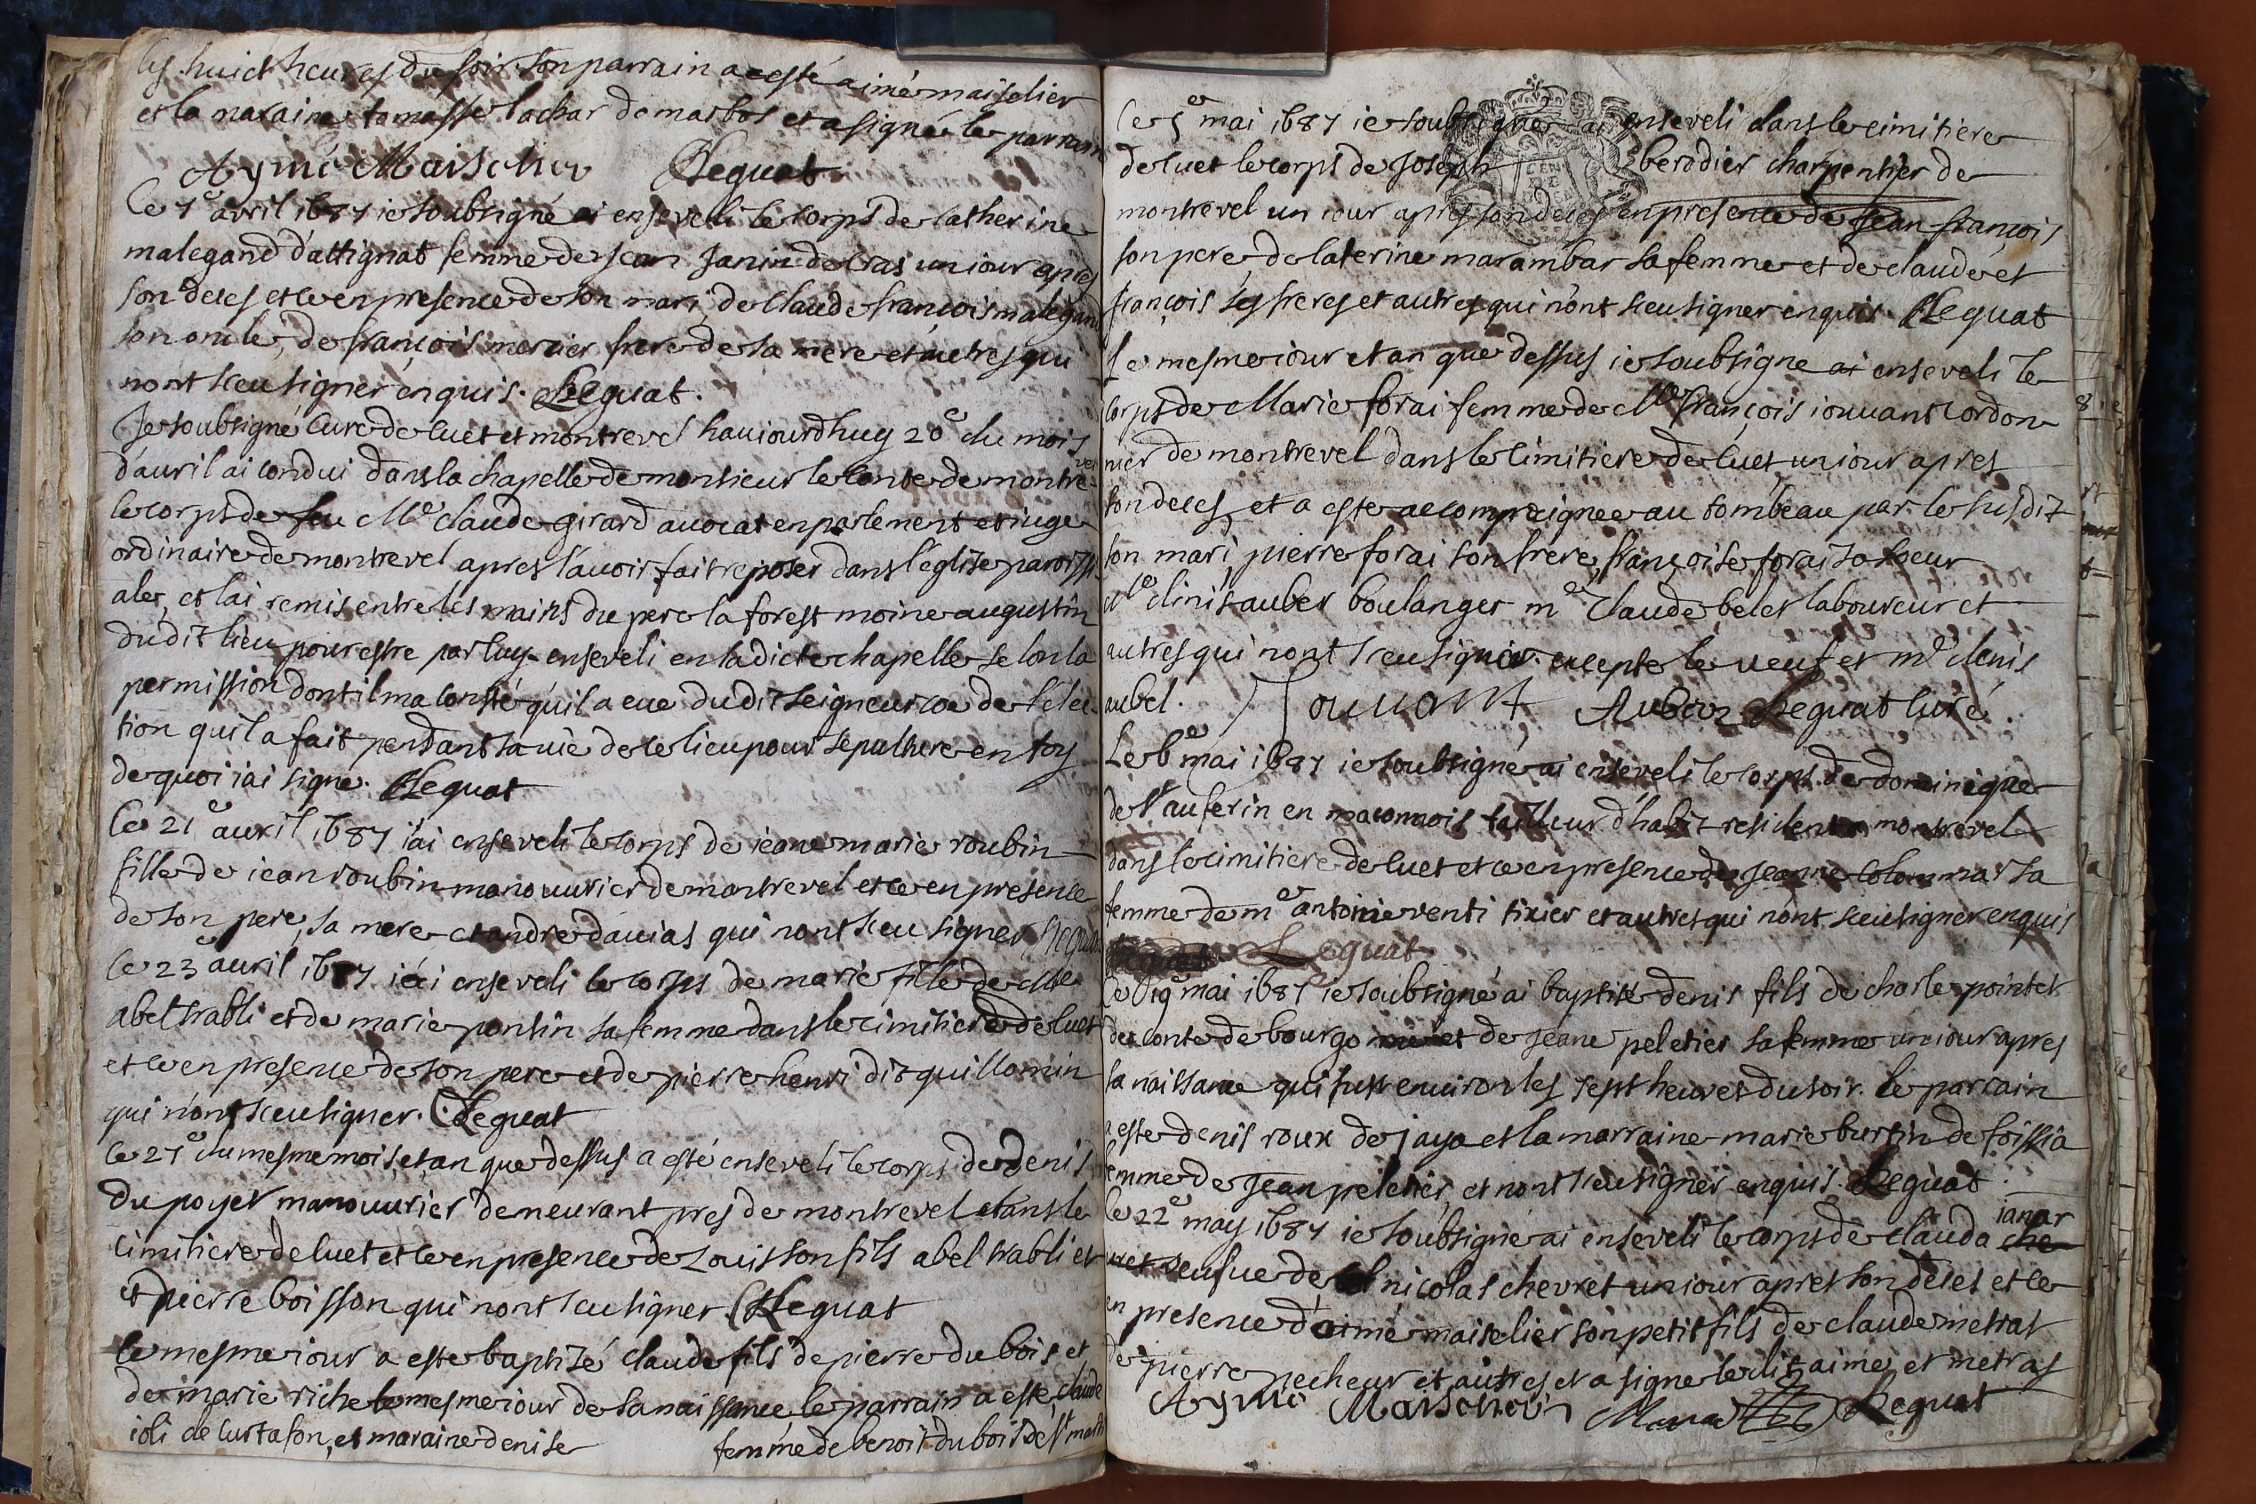 les huict heures du soir son parrain a esté aimé maiselier
et la maraine tomasse lachar de marbos et a signé le parrain
Aymé Maiselier Leguat
Le 7e avril 1687 ie soubsigné ai enseveli le corps de catherine
malegand d'attignat femme de jean janin de cras un iour apres
son deces et ce en presence de son mari, de claude françois malegand
son oncle, de françois mercier frere de sa mere et autres qui
nont sceu signer enquis. Leguat.
Je soubsigné curé de cuet et montrevel ha auiourdhuy 20e du mois
d'auril ai condui dans la chapelle de monsieur le conte de montrevel
le corps de feu Me claude girard auocat en parlement et iuge
ordinaire de montrevel apres l'auoir fait reposer dans l'église paroissi-
ale, et lai remis entre les mains du pere la forest moine augustin
dudit lieu pour estre par luy enseveli en ladicte chapelle selon la
permission dont il ma consté qu'il a eue dudit seigneur coe de l'elec-
tion quil a fait pendant sa vie de ce lieu pour sepulture en foy
de quoi iai signé. Leguat
Le 21e auril 1687 iai enseveli le corps de ieane marie roubin
fille de iean roubin manouurier de montrevel et ce en presence
de son pere, sa mere et andre dauias qui nont sceu signer Leguat
Le 23e auril 1687 iai enseveli le corps de marie fille de Me
abel trabli et de marie pontin sa femme dans le cimitiere de cuet
et ce en presence de son pere et de pierre henri dit guillomin
qui n'ont sceu signer. Leguat
Le 27e du mesme mois et an que dessus a esté enseveli le corps de denis
du poyet manouurier demeurant pres de montrevel dans le
cimitiere de cuet et ce en presence de Louis son fils abel trabli et
et pierre boisson qui nont sceu signer Leguat
Le mesme iour a este baptizé claude fils de pierre du bois et
de marie riche le mesme iour de sa naissance le parrain a este claude
ioli de curtafon, et maraine denise femme de benoit du bois de st mart
Ce 5e mai 1687 ie soubsigné ai enseveli dans le cimitiere
de cuet le corps de Joseph berodier charpentier de
montrevel un iour apres son deces en presence de jean françois
son pere de caterine marambar sa femme et de claude et
françois ses freres et autres qui n'ont sceu signer enquis. Leguat
Le mesme iour et an que dessus ie soubsigne ai enseveli le
corps de Marie forai femme de Me françois iouuant cordon
nier de montrevel dans le cimitiere de cuet un iour apres
son deces, et a este accompaignee au tombeau par le susdit
son mari, pierre forai son frere, françoise forai sa soeur
Me denis auber boulanger me claude belet laboureur et
autres qui nont sceu signer excepte le veuf et me denis
aubel. Jouuant Auber Leguat curé.
Le 6e mai 1687 ie soubsigné ai enseveli le corps de dominique
de st auferin en maconnois tailleur d'habit resident a montrevel
dans le cimitiere de cuet et ce en presence de jeanne colommar sa
femme de me antoine venti tixier et autres qui n'ont sceu signer enquis
Leguat
Le 19e mai 1687 ie soubsigné ai baptisé denis fils de charle pointet
de conte de bourgo et de jeane peletier sa femme un iour apres
sa naissance qui fust enuiron les sept heures du soir. le parrain
a este denis roux de jaya et la marraine marie burtin de foissia
femme de Jean peletier, et nont sceu signer enquis. Leguat.
ianar
Le 22e may 1687 ie soubsigné ai enseveli le corps de clauda che
vret veufve de nicolas chevret un iour apres son deces et ce
en presence d'aimé maiselier son petit fils de claude metrat
de pierre pecheur et autres et a signé ledit aime et metras
Aymé Maiselier Leguat